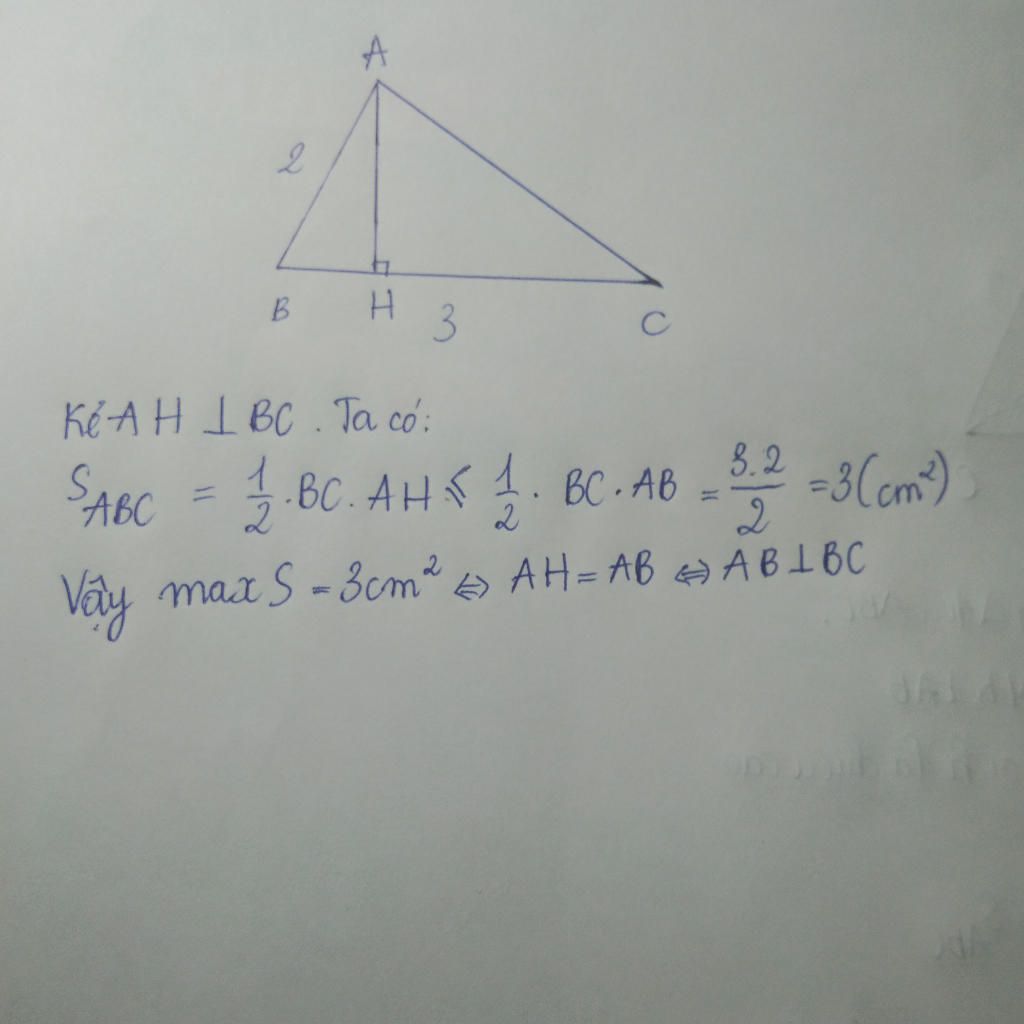 A
2
B H 3 C
Kẻ AH ⊥ BC. Ta có:
S_ABC = 1/2 . BC . AH ≤ 1/2 . BC . AB = 3.2/2 = 3 (cm²)
Vậy max S = 3cm² ⇔ AH = AB ⇔ AB ⊥ BC